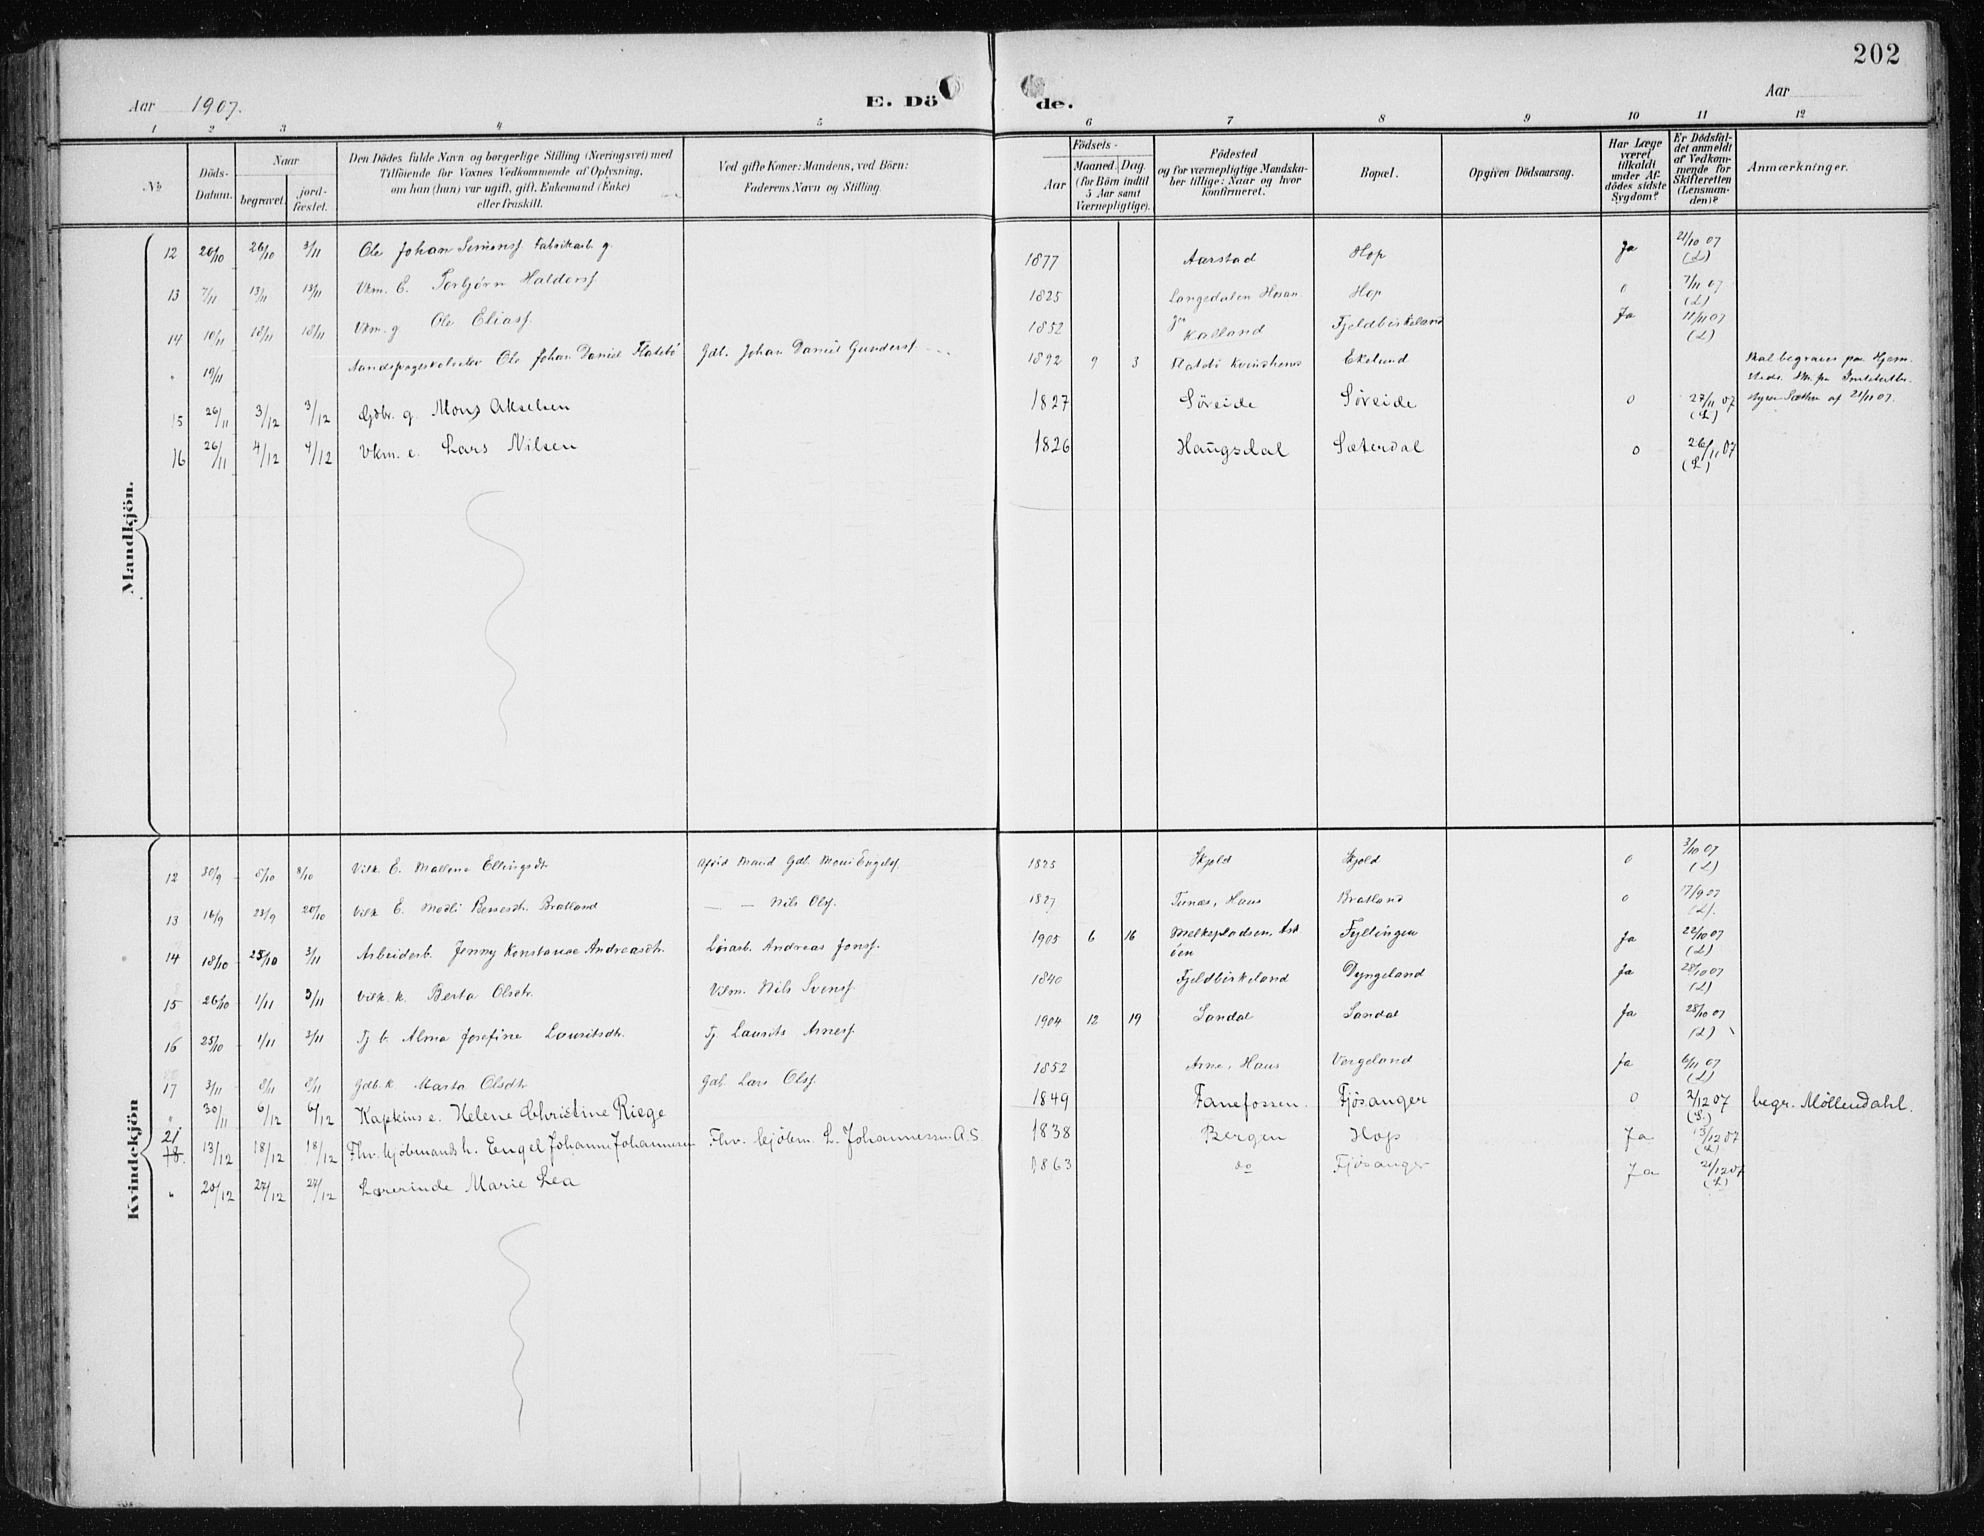 202
Aar 1907. E. Dö de. Aar
1 2 3 4 5 6 7 8 9 10 11 12
№
Döds-Datum.
Naar
begravet.
jord-fæstet.
Den Dödes fulde Navn og borgerlige Stilling (Næringsvei) med
Tilföiende for Voxnes Vedkommende af Oplysning,
om han (hun) var ugift, gift, Enkemand (Enke)
eller fraskilt.
Ved gifte Koner: Mandens, ved Börn:
Faderens Navn og Stilling.
Födsels-
Aar
Maaned.
Dag.
(for Börn indtil
5 Aar samt
Værnepligtige).
Födested
og for værnepligtige Mandska-
ber tillige: Naar og hvor
konfirmeret.
Bopæl.
Opgiven Dödsaarsag.
Har Læge
været
tilkaldt
under Af-
dödes sidste
Sygdom?
Er Dödsfal-
det anmeldt
af Vedkom-
mende for
Skifteretten
(Lensman-
den)?
Anmærkninger.
Mandkjön.
12 20/10 26/10 3/11 Ole Johan Simonsf. Fabrikarb. g. 1877 Aarstad Hop Ja 21/10 07 (L)
13 7/11 13/11 13/11 Vkm. E. Torbjørn Haldorsf. 1825 Langedalen Hosan. Hop 0 7/11 07 (L)
14 10/11 18/11 18/11 Vkm. g. Ole Eliasf. 1852 Kalland Fjeldbirkeland Ja 11/11 07 (L)
" 19/11 Aandsvageskoleelev Ole Johan Daniel Flatebö Gdb. Johan Daniel Gundersf. 1892 9 3 Flatebö Kvindherred Ekelund Skal begraves paa Hjem-
15 26/11 3/12 3/12 Gdbr. g. Mons Akselsen 1827 Söreide Söreide 0 27/11 07 (L) 21/11 07.
16 26/11 4/12 4/12 Vkm. e. Lars Nilsen 1826 Haugsdal Sæterdal 0 26/11 07 (L)
Kvindekjön
12 30/9 8/10 8/10 Vilk. E. Mallene Ellingsdtr. Afdød Mand Gdb. Mons Engelsf. 1825 Skjold Skjold 0 3/10 07 (L)
13 16/9 23/9 20/10 Vilk. E. Madli Bratland — — Nils Olsf. 1827 Tunes, Haus Bratland 0 17/9 07 (L)
14 18/10 25/10 3/11 Arbeiderb. Jenny Konstanse Andreasdtr. Løsarb. Andreas Jonsf. 1905 6 16 Melkepladsen, Ask-
öen Fyllingen Ja 22/10 07 (L)
15 26/10 1/11 3/11 Vilk. k. Berta Olsdtr. Vilm. Nils Svensf. 1840 Fjeldbirkeland Dyngeland Ja 28/10 07 (L)
16 25/10 1/11 3/11 Tj b. Alma Josefine Lauritsdtr. Tj. Laurits Arnesf. 1904 12 19 Sandal Sandal Ja 28/10 07 (L)
17 3/11 8/11 8/11 Gdb. k. Marta Olsdtr. Gdb. Lars Olsf. 1852 Arne, Haus Vergeland Ja 6/11 07 (L)
" 30/11 6/12 6/12 Kapkins e. Helene Christine Riege 1849 Fanefossen. Fjösanger 0 2/12 07 (L) begr. Möllendahl.
21
18. 13/12 18/12 18/12 Fhv. kjöbmands h. Engel Johanne Johannesen Fhv. kjöbm. L. Johannessen A.S. 1838 Bergen Hop Ja 13/12 07 (L)
" 20/12 27/12 27/12 Lærerinde Marie Lea 1863 do Fjösanger Ja 21/12 07 (L)